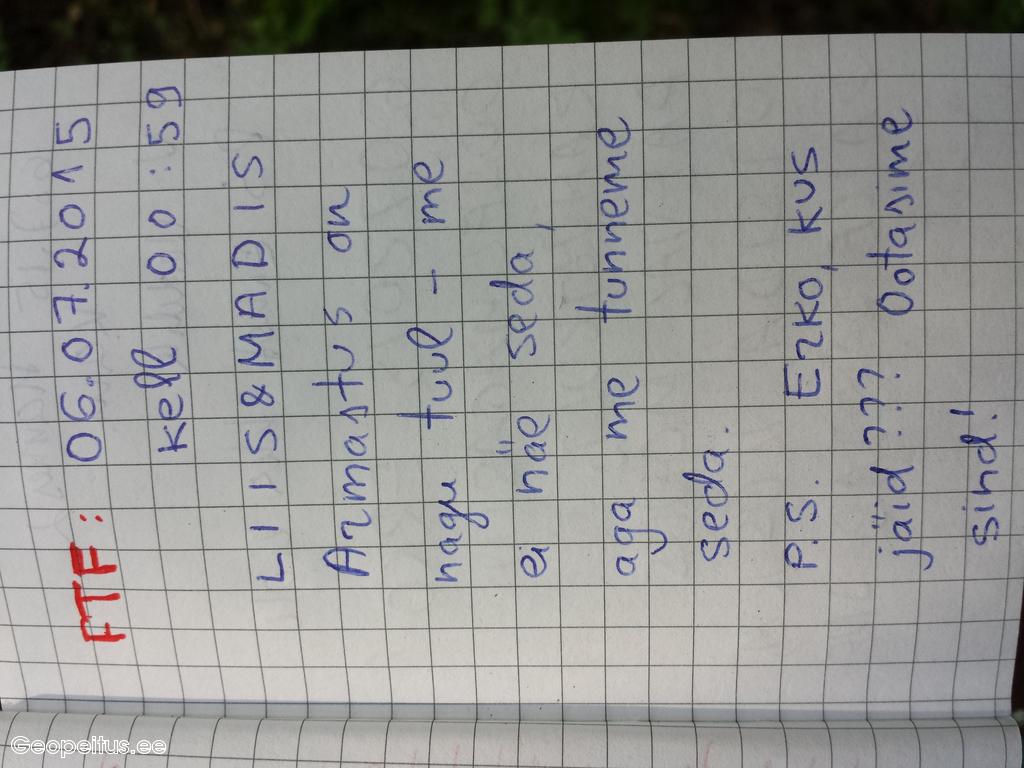 FTF: 06.07.2015
kell 00:59
LIIS&MADIS
Armastus on
nagu tuul - me
ei näe seda,
aga me tunneme
seda.
P.S. Erko, kus
jäid ??? Ootasime
sind!
Geopeitus.ee